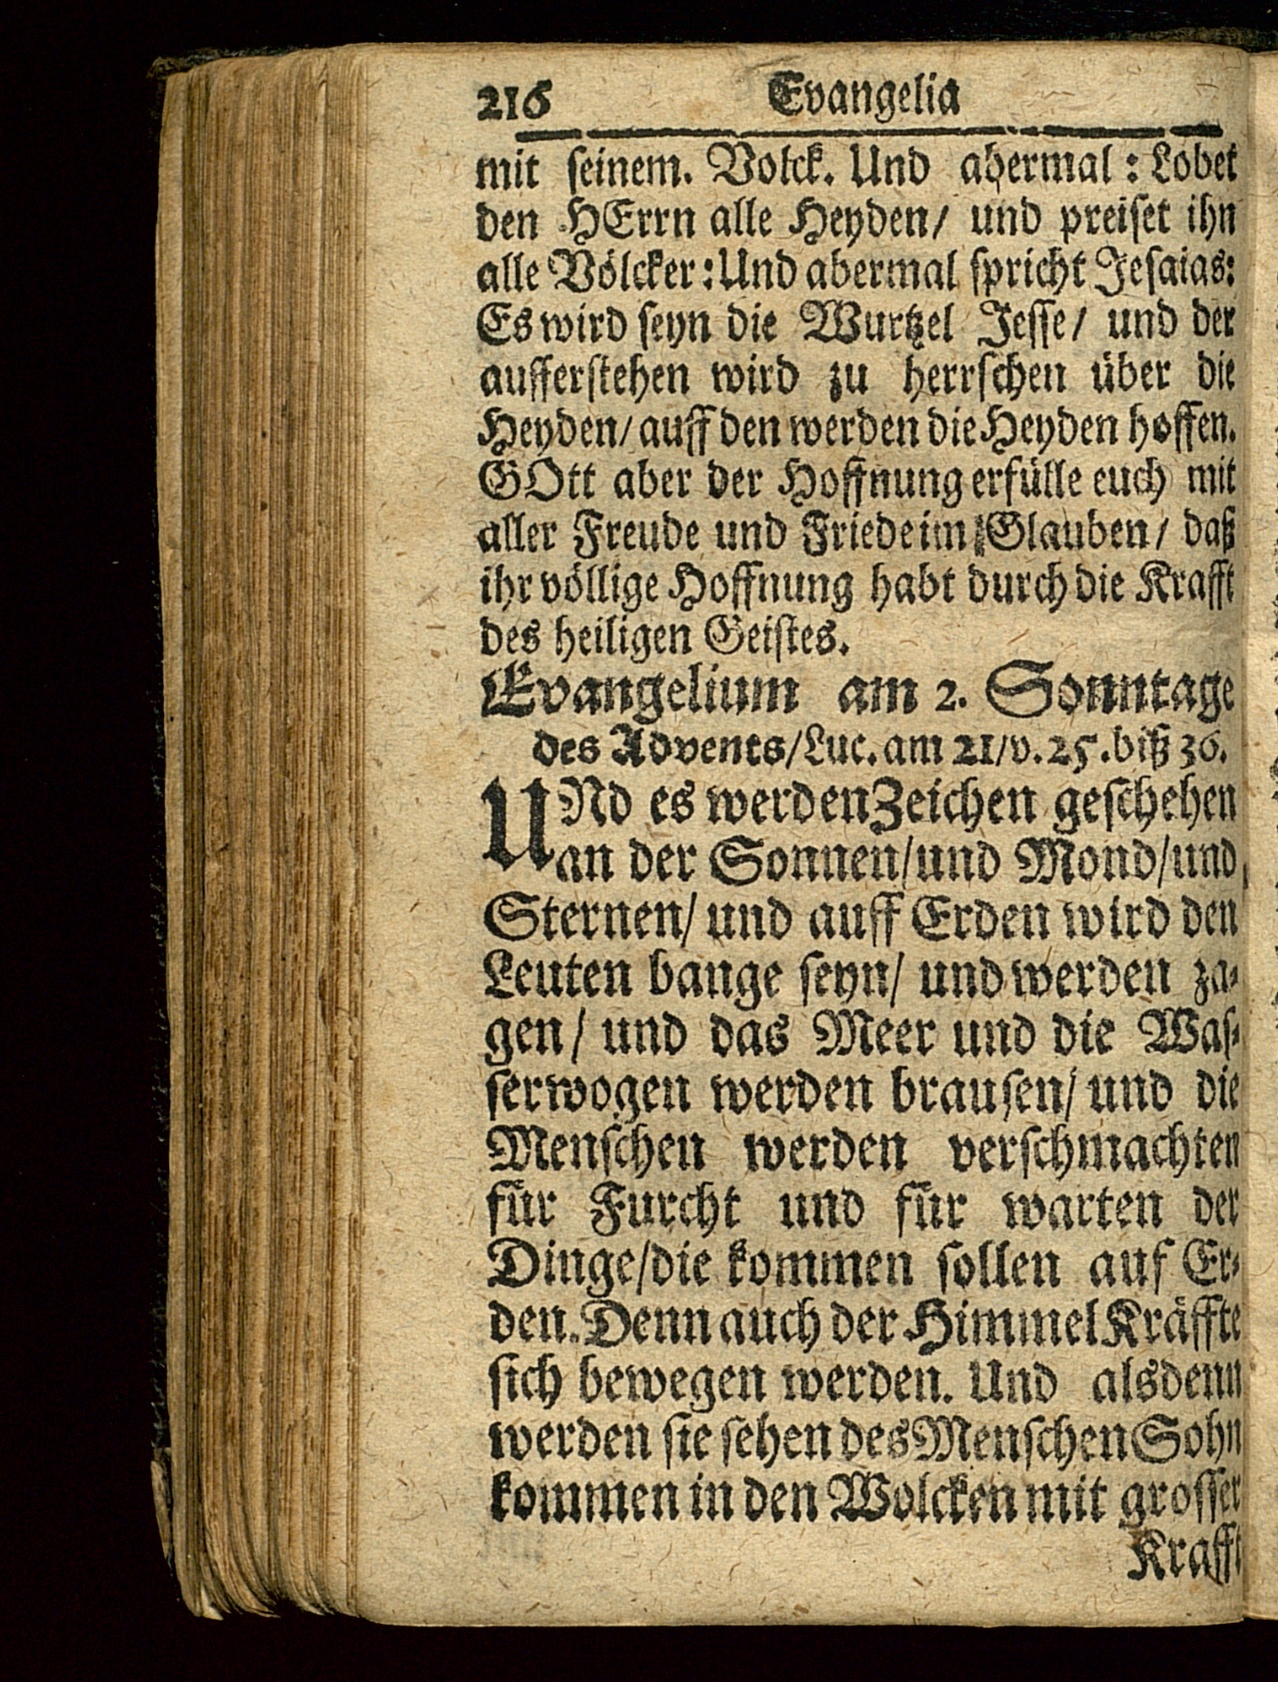 216 Evangelia
mit ſeinem. Volck. Und abermal: Lobet
den HErrn alle Heyden/ und preiſet ihn
alle Völcker: Und abermal ſpricht Jeſaias:
Es wird ſeyn die Wurtzel Jeſſe/ und der
aufferſtehen wird zu herrſchen über die
Heyden/ auff den werden die Heyden hoffen.
GOtt aber der Hoffnung erfülle euch mit
aller Freude und Friede im Glauben/ daß
ihr völlige Hoffnung habt durch die Krafft
des heiligen Geiſtes.
Evangelium am 2. Sonntage
des Advents/ Luc. am 21/ v. 25. biß 36.
UNd es werden Zeichen geſchehen
an der Sonnen/ und Mond/ und
Sternen/ und auff Erden wird den
Leuten bange ſeyn/ und werden za-
gen/ und das Meer und die Waſ-
ſerwogen werden brauſen/ und die
Menſchen werden verſchmachten
für Furcht und für warten der
Dinge/ die kommen ſollen auf Er-
den. Denn auch der Himmel Kräffte
ſich bewegen werden. Und alsdenn
werden ſie ſehen des Menſchen Sohn
kommen in den Wolcken mit groſſer
Krafft